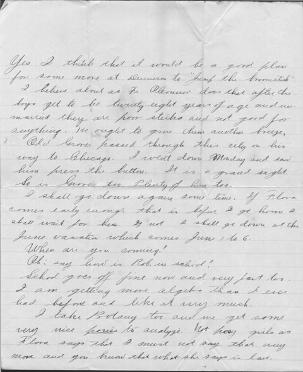 Yes I think that it would be a good plan
for some more at Denison to "jump the broomstick"
I believe about as Fr. does that after the
boys get to be twenty eight years of age and un
married they are poor sticks and not good for
anything. We ought to give them another breeze,
Old Grover passed through this city on his
way to Chicago. I went down Monday and saw
him press the button. It is a grand sight
So is Grover too Plenty of him too.
I shall go down again some time. If Flora
comes early enough that is before I go home I
shall wait for her. If not I shall go down at the
June vacation which comes Jun 1 to 6.
When are you coming?
Oh! say how is Rob in school?
School goes off fine now and very fast too.
I am getting more algebra than I ever
had before and like it very much.
I take Botany too and we get some
very nice to analyze. Not very girls as
Flora says that I must not say that very
more and you know that what she says is law.